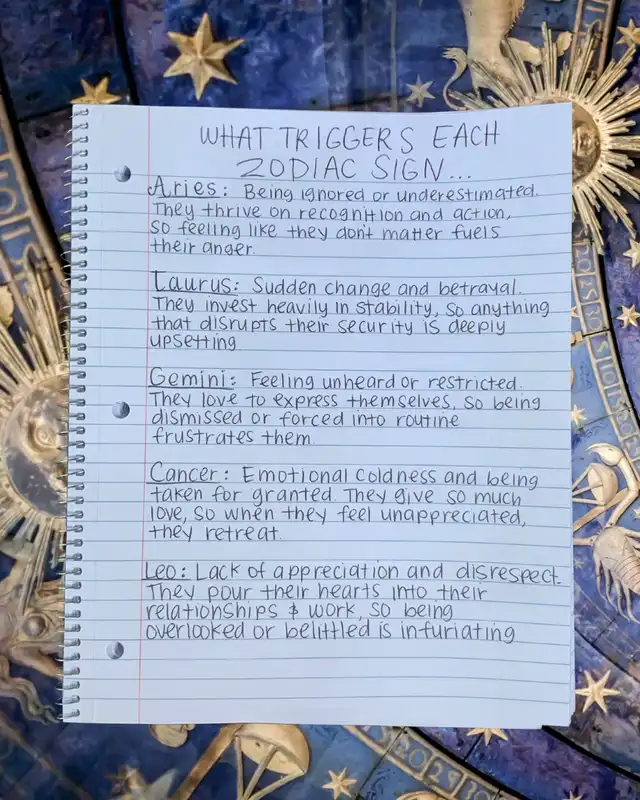 WHAT TRIGGERS EACH
ZODIAC SIGN...
Aries: Being ignored or underestimated.
They thrive on recognition and action,
so feeling like they don't matter fuels
their anger.
Taurus: Sudden change and betrayal.
They invest heavily in stability, so anything
that disrupts their security is deeply
upsetting
Gemini: Feeling unheard or restricted.
They love to express themselves, so being
dismissed or forced into routine
frustrates them.
Cancer: Emotional coldness and being
taken for granted. They give so much
love, so when they feel unappreciated,
they retreat.
Leo: Lack of appreciation and disrespect.
They pour their hearts into their
relationships & work, so being
overlooked or belittled is infuriating